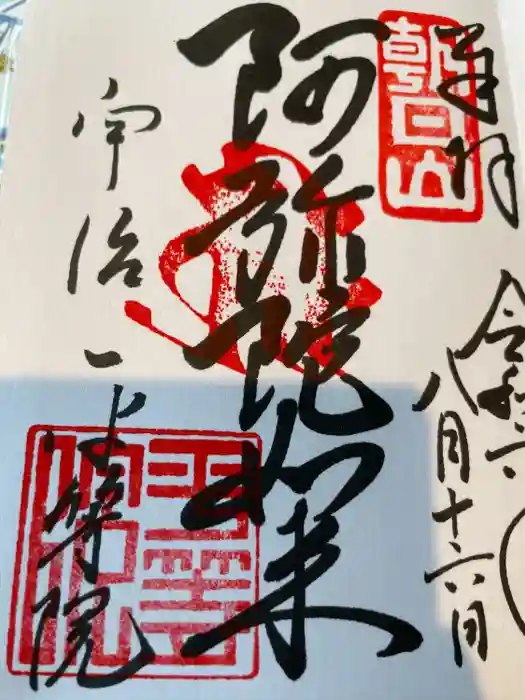 奉拝
朝日山
令和六
八月十六日
阿弥陀如来
宇治 平等院